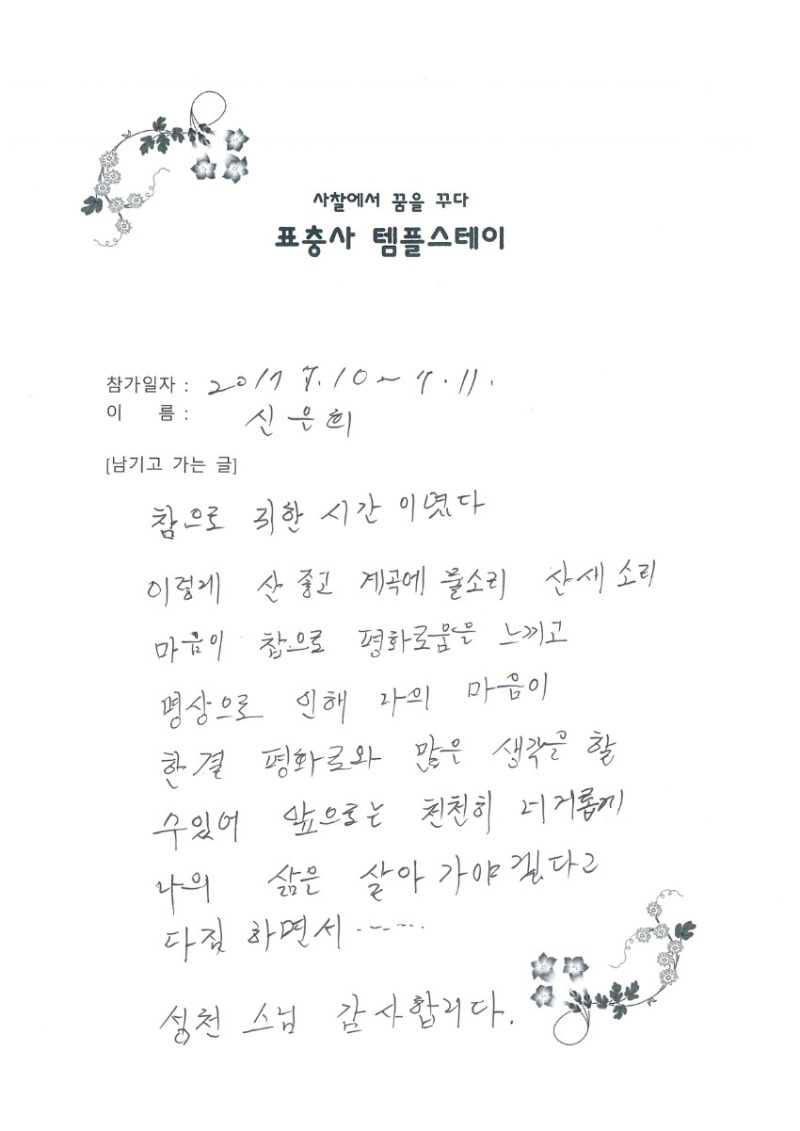 사찰에서 꿈을 꾸다
표충사 템플스테이
참가일자 : 2017 7.10 ~ 7.11.
이 름 : 신은희
[남기고 가는 글]
참으로 귀한 시간 이였다
이렇게 산 좋고 계곡에 물소리 산새 소리
마음이 참으로 평화로움은 느끼고
명상으로 인해 나의 마음이
한결 평화로와 많은 생각을 할
수있어 앞으로는 천천히 너거롭게
나의 삶은 살아 가야 겠다고
다짐 하면서 ......
성천 스님 감사합니다.